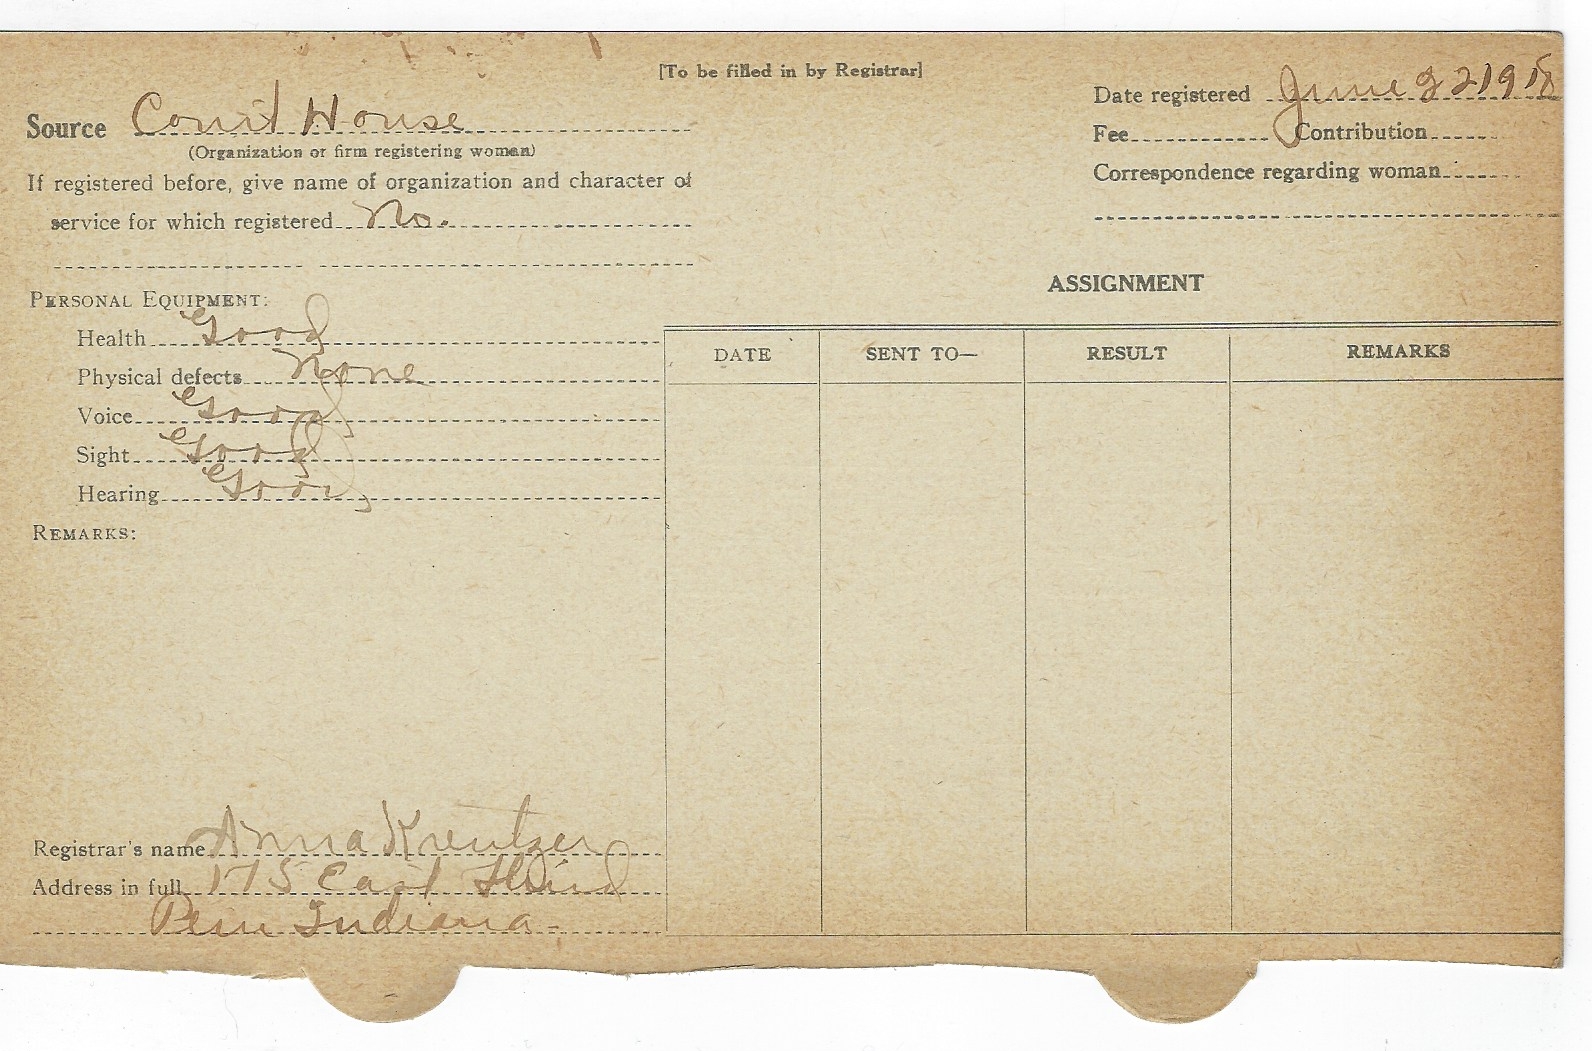 [To be filled in by Registrar]
Source Court House
(Organization or firm registering woman)
If registered before, give name of organization and character of
service for which registered No.
Date registered June 22 1918
Fee Contribution
Correspondence regarding woman
PERSONAL EQUIPMENT:
Health Good
Physical defects None
Voice Good
Sight Good
Hearing Good
REMARKS:
ASSIGNMENT
DATE SENT TO— RESULT REMARKS
Registrar's name Anna Kreutzer
Address in full 175 East Third
Peru Indiana.